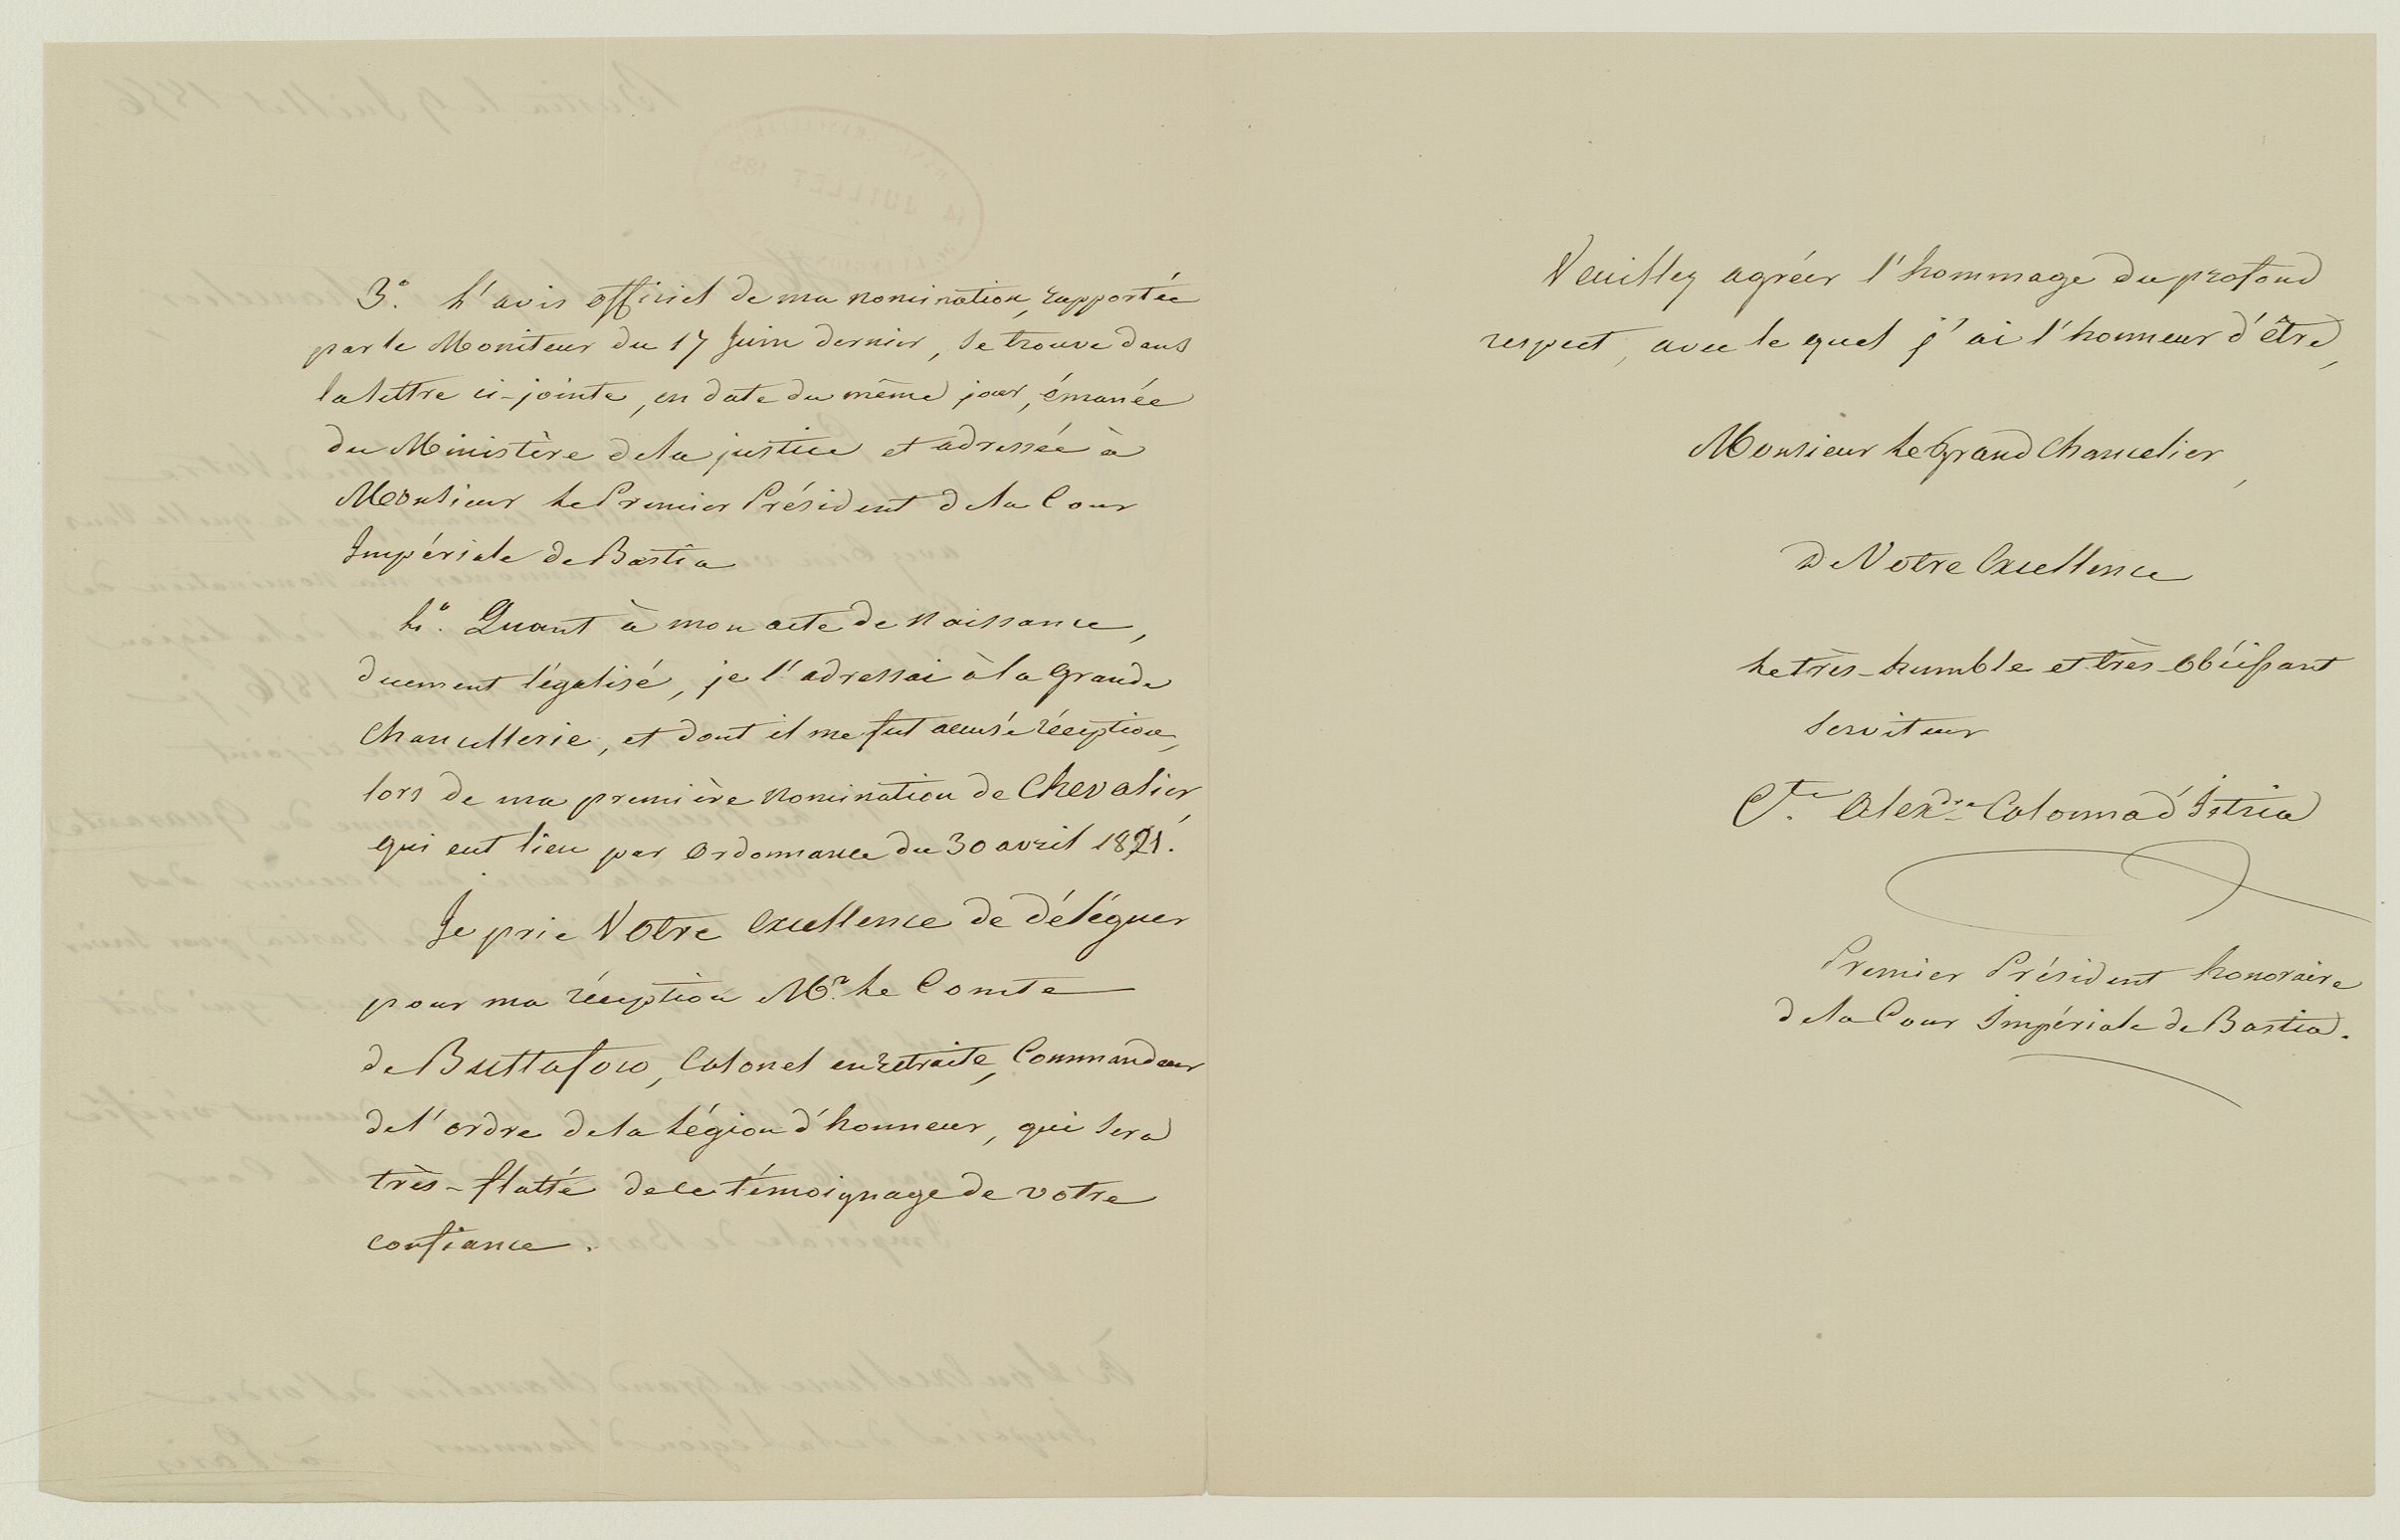 3.° L'avis officiel de ma nomination, rapportée
par le Moniteur du 17 Juin dernier, se trouve dans
la lettre ci-jointe, en date du même jour, émanée
du Ministère de la justice et adressée à
Monsieur le Premier Président de la Cour
Impériale de Bastia
4.° Quant à mon acte de naissance,
duement légalisé, je l'adressai à la Grande
Chancellerie, et dont il me fut accusé réception,
lors de ma première nomination de Chevalier,
qui eut lieu par Ordonnance du 30 avril 1821.
Je prie Votre Excellence de déléguer
pour ma réception M.r le Comte
de Buttafoco, Colonel en retraite, Commandeur
de l'ordre de la Légion d'honneur, qui sera
très-flatté de ce témoignage de votre
confiance.
Veuillez agréer l'hommage du profond
respect, avec le quel j'ai l'honneur d'être,
Monsieur le Grand Chancelier,
De Votre Excellence
le très-humble et très-obéissant
serviteur
C.te Alex.dre Colonna d'Istria
Premier Président honoraire
de la Cour Impériale de Bastia.